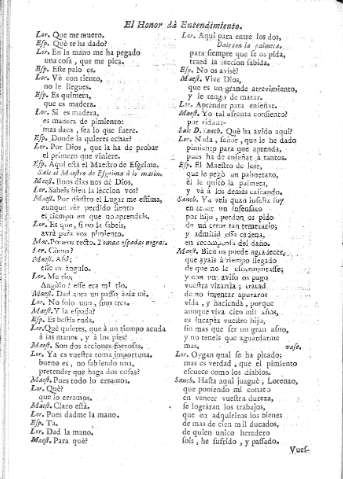 El Honor dà Entendimiento.
Lor. Que me muero.
Esp. Què te ha dado?
Lor. En la mano me ha pegado
una cosa, que me pica.
Esp. Este palo es.
Lor. Vè con tiento,
no le llegues.
Esp. Es quimera,
que es madera.
Lor. Si es madera,
es madera de pimiento:
mas dura, sea lo que fuere.
Esp. Donde la quieres echar?
Lor. Por Dios, que la ha de probar
el primero que viniere.
Esp. Aqui està el Maestro de Esgrima.
Sale el Maestro de Esgrima à lo maton.
Maest. Buenos dias nos dè Dios.
Lor. Sabeis bien la leccion vos?
Maest. Por diestro el Lugar me estima,
aunque es perdido
el tiempo en que no aprendeis.
Lor. Es que, si no la sabeis,
avrà para vos pimiento.
Mae. Poneos recto. Toman espadas negras.
Lor. Còmo?
Maest. Assi;
esse es angulo.
Lor. Mi tio,
Angulo? esse era mi tio.
Maest. Dad un passo àzia mi.
Lor. No solo uno, sino trece.
Maest. Y la espada?
Esp. Es bestia ruda.
Lor. Què quieres, que à un tiempo acuda
à las manos, y à los pies?
Maest. Son dos acciones forzosas.
Lor. Ya es vuestra tema importuna.
bueno es, no sabiendo una,
pretender que haga dos cosas?
Maest. Pues todo lo erramos.
Lor. Què?
que lo erramos.
Maest. Claro està.
Lor. Pues dadme la mano.
Esp. Ta.
Lor. Dad la mano.
Maest. Para què?
Lor. Aqui para entre los dos,
Dale con la palmeta.
para siempre que se os pida,
traed la leccion sabida.
Esp. No os avisè?
Maest. Vive Dios,
que es un grande atrevimiento,
y le tengo de matar.
Lor. Aprender para enseñar.
Maest. Yo tal afrenta consiento?
por
Sale D. Sanch. Què ha avido aqui?
Lor. Nada, señor, que le he dado
pimiento para que aprenda,
pues ha de enseñar à tantos.
Esp. El Maestro de leer,
que le pegò un palmetazo,
èl le quitò la palmeta,
y và à los demàs cascando.
Sanch. Ya veis quan
en tener un insensato
por hijo, perdon os pido
de un tan temerario;
y admitid essa cadena,
en recompensa del daño.
Maest. Bien os puede agradecer,
que ayais à tiempo llegado
de que no le
y con este aviso os pago
vuestra vizarria; tratad
de no intentar apuraros
vida, y hacienda, porque
aunque viva cien mil años,
es incapàz vuestro hijo,
sin mas que ser un gran asno,
y no teneis que aguardarme
mas. vase.
Lor. Oygan qual se ha picado;
mas es verdad, que el pimiento
escuece como los diablos.
Sanch. Hasta aqui juzguè, Lorenzo,
que poniendo mi conato
en vencer vuestra dureza,
se lograran los trabajos,
que en adquirirles los bienes
de mas de cien mil ducados,
de quien unico heredero
sois, he sufrido, y passado.
Vues-